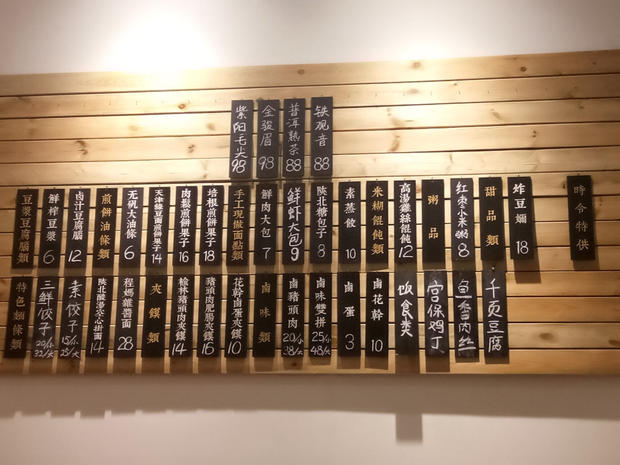 紫阳毛尖 98
金骏眉 98
普洱熟茶 88
铁观音 88
豆漿豆腐腦類
鮮榨豆漿 6
鹵汁豆腐腦 12
煎餅油條類
无矾大油條 6
天津綠豆面煎餅果子 14
肉鬆煎餅果子 16
培根煎餅果子 18
手工現做面點類
鮮肉大包 7
鲜虾大包 9
陝北糖包子 8
素蒸餃 10
米糊餛飩類
高湯雞絲餛飩 12
粥品
红枣小米粥 8
甜品類
炸豆嬭 18
時令特供
特色麵條類
三鲜饺子 20/小 32/大
素饺子 15/小 25/大
陝北酸湯空心掛面 14
程媽雜醬面 28
夾饃類
榆林豬頭肉夾饃 14
豬頭肉肥腸夾饃 16
花幹鹵蛋夾饃 10
鹵味類
鹵豬頭肉 20/小 38/大
鹵味雙拼 25/小 48/大
鹵蛋 3
鹵花幹 10
饭食类
宫保鸡丁
鱼香肉丝
千页豆腐